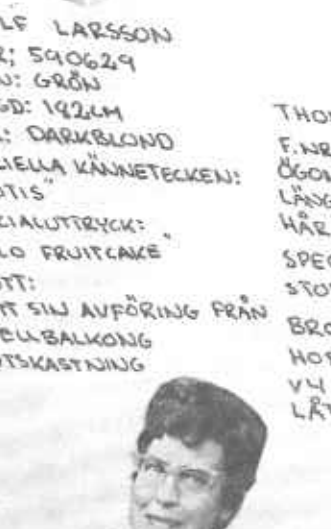 LF LARSSON
R; 590629
N: GRÖN
GD: 192CM
: DARKBLOND
CIELLA KÄNNETECKEN:
OTIS"
CIALUTTRYCK:
LO FRUITCAKE"
OTT:
T SIN AVFÖRING FRÅN
ELLBALKONG
OTSKASTNING
THO
F.NR
ÖGON
LÄNG
HÅR
SPEC
STO
BRO
HO
V4
LÅT